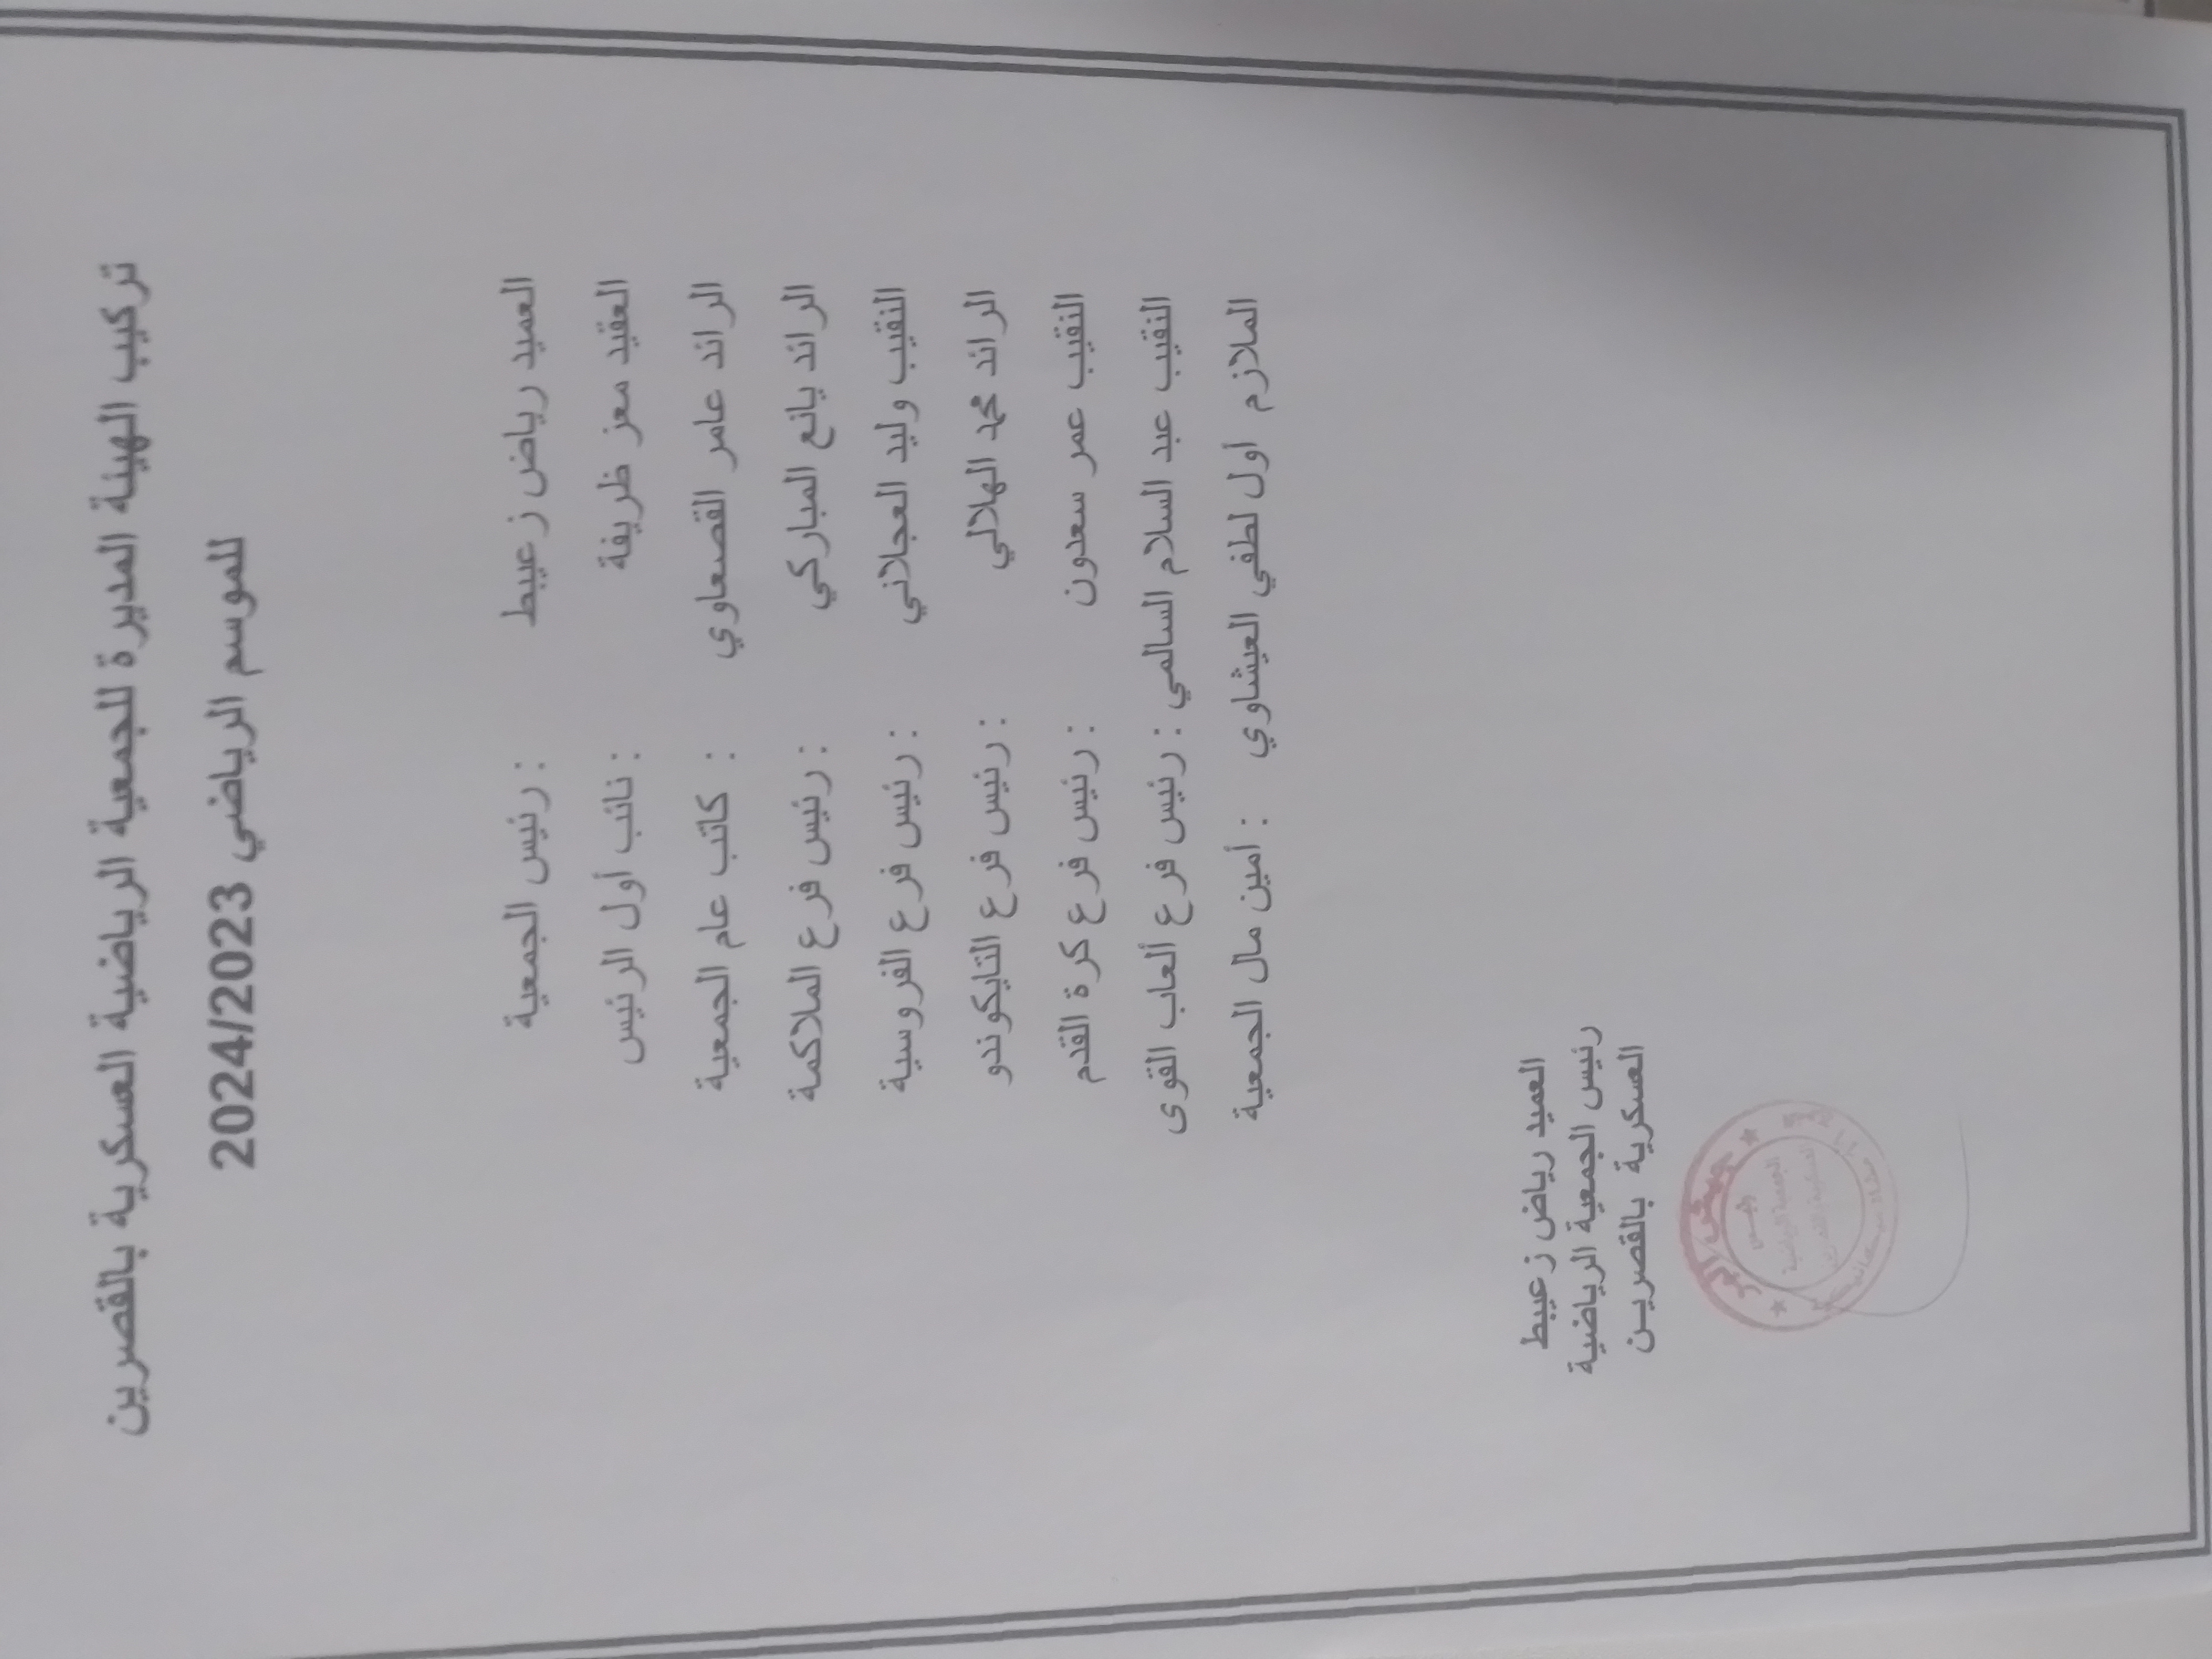 تركيب الهيئة المديرة للجمعية الرياضية العسكرية بالقصرين
للموسم الرياضي 2024/2023
العميد رياض زعيبط : رئيس الجمعية
العقيد معز ظريفة : نائب أول الرئيس
الرائد عامر القصعاوي : كاتب عام الجمعية
الرائد يانع المباركي : رئيس فرع الملاكمة
النقيب وليد العجلاني : رئيس فرع الفروسية
الرائد محمد الهلالي : رئيس فرع التايكوندو
النقيب عمر سعدون : رئيس فرع كرة القدم
النقيب عبد السلام السالمي : رئيس فرع ألعاب القوى
الملازم أول لطفي العيشاوي : أمين مال الجمعية
العميد رياض زعيبط
رئيس الجمعية الرياضية
العسكرية بالقصريـن
جيش البر
رئيـس
الجمعية الرياضية
العسكرية بالقصرين